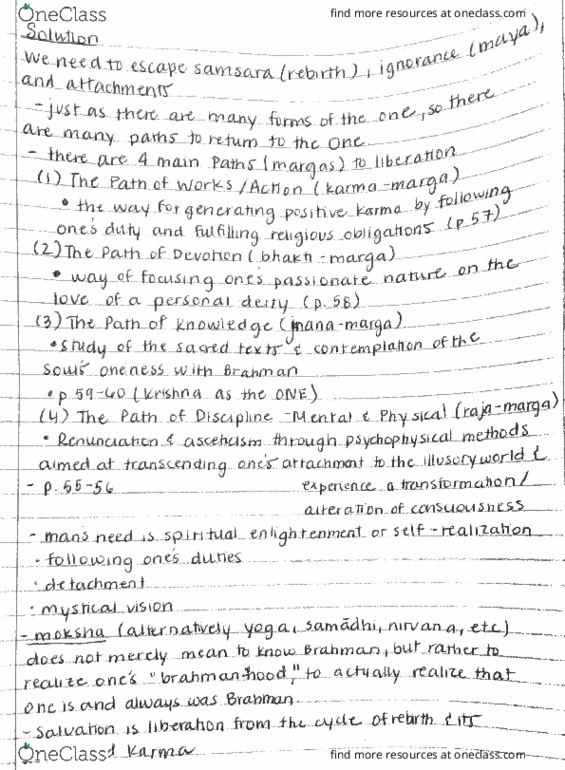 OneClass
find more resources at oneclass.com
Solution
We need to escape samsara (rebirth), ignorance (maya),
and attachments
- just as there are many forms of the one, so there
are many paths to return to the One
- there are 4 main Paths (margas) to liberation
(1) The Path of Works/Action (karma-marga)
• the way for generating positive karma by following
one's duty and fulfilling religious obligations (p.57)
(2) The Path of Devotion (bhakti-marga)
• way of focusing one's passionate nature on the
love of a personal deity (p.58)
(3) The Path of Knowledge (jnana-marga)
• Study of the sacred texts & contemplation of the
soul's oneness with Brahman
• p 59-60 (Krishna as the ONE)
(4) The Path of Discipline - Mental & Physical (raja-marga)
• Renunciation & asceticism through psychophysical methods
aimed at transcending one's attachment to the illusory world &
- p. 55-56 experience a transformation/
alteration of consuousness
- man's need is spiritual enlightenment or self-realization
• following one's duties
• detachment
• mystical vision
- moksha (alternatively yoga, samādhi, nirvana, etc)
does not merely mean to know Brahman, but rather to
realize one's "brahman-hood," to actually realize that
one is and always was Brahman.
- Salvation is liberation from the cycle of rebirth & its
Karma
OneClass
find more resources at oneclass.com